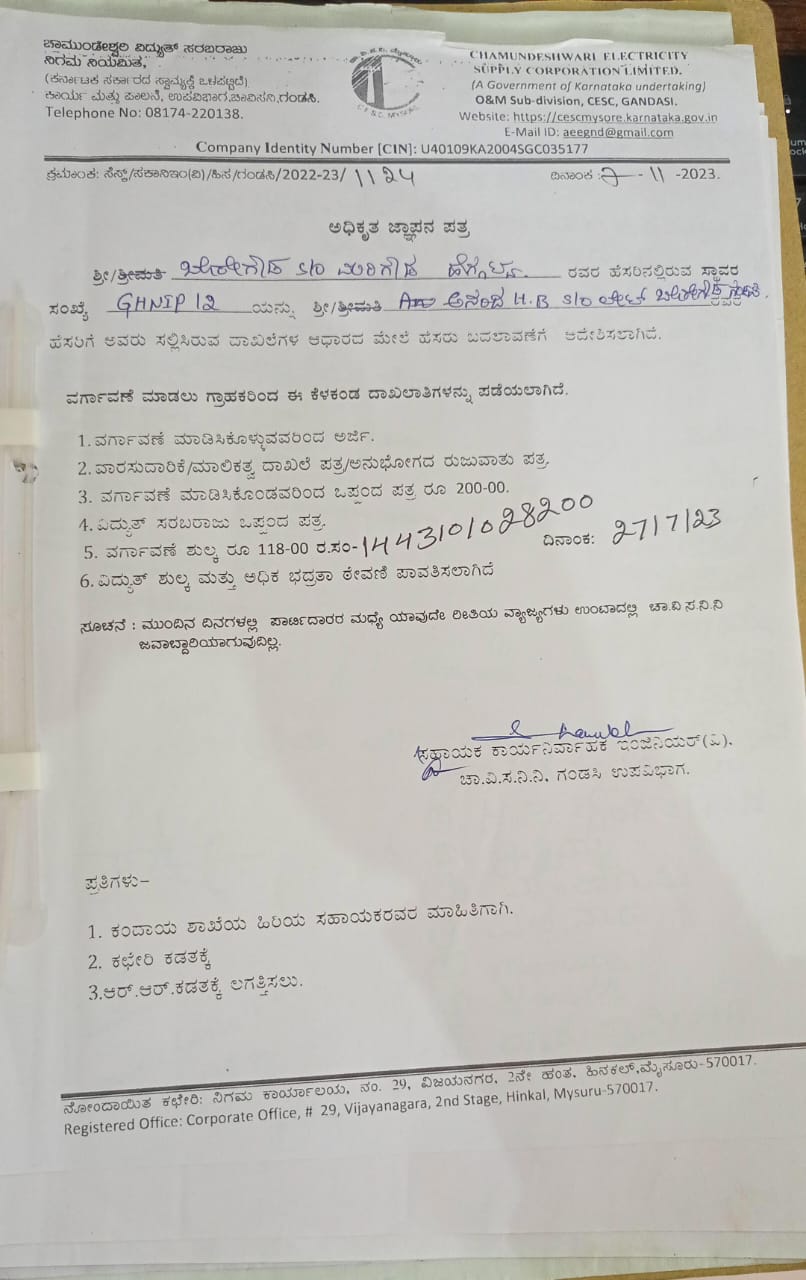 ಚಾಮುಂಡೇಶ್ವರಿ ವಿದ್ಯುತ್ ಸರಬರಾಜು
ನಿಗಮ ನಿಯಮಿತ,
(ಕರ್ನಾಟಕ ಸರ್ಕಾರದ ಸ್ವಾಮ್ಯಕ್ಕೆ ಒಳಪಟ್ಟಿದೆ)
ಕಾರ್ಯ ಮತ್ತು ಪಾಲನೆ, ಉಪವಿಭಾಗ,ಚಾವಿಸನಿ,ಗಂಡಸಿ.
Telephone No: 08174-220138.
CHAMUNDESHWARI ELECTRICITY
SUPPLY CORPORATION LIMITED.
(A Government of Karnataka undertaking)
O&M Sub-division, CESC, GANDASI.
Website: https://cescmysore.karnataka.gov.in
E-Mail ID: aeegnd@gmail.com
Company Identity Number [CIN]: U40109KA2004SGC035177
ಕ್ರಮಾಂಕ: ಸೆಸ್ಕ್/ಸಕಾನಿಇಂ(ವಿ)/ಹಿಸ/ಗಂಡಸಿ/2022-23/ 1124 ದಿನಾಂಕ :7-11-2023.
ಅಧಿಕೃತ ಜ್ಞಾಪನ ಪತ್ರ
ಶ್ರೀ/ಶ್ರೀಮತಿ ಬೋರೇಗೌಡ S/o ಮರಿಗೌಡ ರವರ ಹೆಸರಿನಲ್ಲಿರುವ ಸ್ಥಾವರ
ಸಂಖ್ಯೆ GHNIP 12 ಯನ್ನು ಶ್ರೀ/ಶ್ರೀಮತಿ ಆನಂದ H.B S/o ಲೇಟ್ ಬೋರೇಗೌಡ
ಹೆಸರಿಗೆ ಅವರು ಸಲ್ಲಿಸಿರುವ ದಾಖಲೆಗಳ ಆಧಾರದ ಮೇಲೆ ಹೆಸರು ಬದಲಾವಣೆಗೆ ಆದೇಶಿಸಲಾಗಿದೆ.
ವರ್ಗಾವಣೆ ಮಾಡಲು ಗ್ರಾಹಕರಿಂದ ಈ ಕೆಳಕಂಡ ದಾಖಲಾತಿಗಳನ್ನು ಪಡೆಯಲಾಗಿದೆ.
1.ವರ್ಗಾವಣೆ ಮಾಡಿಸಿಕೊಳ್ಳುವವರಿಂದ ಅರ್ಜಿ.
2.ವಾರಸುದಾರಿಕೆ/ಮಾಲಿಕತ್ವ ದಾಖಲೆ ಪತ್ರ/ಅನುಭೋಗದ ರುಜುವಾತು ಪತ್ರ.
3. ವರ್ಗಾವಣೆ ಮಾಡಿಸಿಕೊಂಡವರಿಂದ ಒಪ್ಪಂದ ಪತ್ರ ರೂ 200-00.
4.ವಿದ್ಯುತ್ ಸರಬರಾಜು ಒಪ್ಪಂದ ಪತ್ರ.
5. ವರ್ಗಾವಣೆ ಶುಲ್ಕ ರೂ 118-00 ರ.ಸಂ-1443101028200 ದಿನಾಂಕ: 27/7/23
6.ವಿದ್ಯುತ್ ಶುಲ್ಕ ಮತ್ತು ಅಧಿಕ ಭದ್ರತಾ ಠೇವಣಿ ಪಾವತಿಸಲಾಗಿದೆ
ಸೂಚನೆ : ಮುಂದಿನ ದಿನಗಳಲ್ಲಿ ಪಾರ್ಟಿದಾರರ ಮಧ್ಯೆ ಯಾವುದೇ ರೀತಿಯ ವ್ಯಾಜ್ಯಗಳು ಉಂಟಾದಲ್ಲಿ ಚಾ.ವಿ ಸ.ನಿ.ನಿ
ಜವಾಬ್ದಾರಿಯಾಗುವುದಿಲ್ಲ.
ಸಹಾಯಕ ಕಾರ್ಯನಿರ್ವಾಹಕ ಇಂಜಿನಿಯರ್(ವಿ),
ಚಾ.ವಿ.ಸ.ನಿ.ನಿ, ಗಂಡಸಿ ಉಪವಿಭಾಗ.
ಪ್ರತಿಗಳು–
1. ಕಂದಾಯ ಶಾಖೆಯ ಹಿರಿಯ ಸಹಾಯಕರವರ ಮಾಹಿತಿಗಾಗಿ.
2. ಕಛೇರಿ ಕಡತಕ್ಕೆ
3.ಆರ್.ಆರ್.ಕಡತಕ್ಕೆ ಲಗತ್ತಿಸಲು.
ನೋಂದಾಯಿತ ಕಛೇರಿ: ನಿಗಮ ಕಾರ್ಯಾಲಯ, ನಂ. 29, ವಿಜಯನಗರ, 2ನೇ ಹಂತ, ಹಿನಕಲ್,ಮೈಸೂರು-570017.
Registered Office: Corporate Office, # 29, Vijayanagara, 2nd Stage, Hinkal, Mysuru-570017.